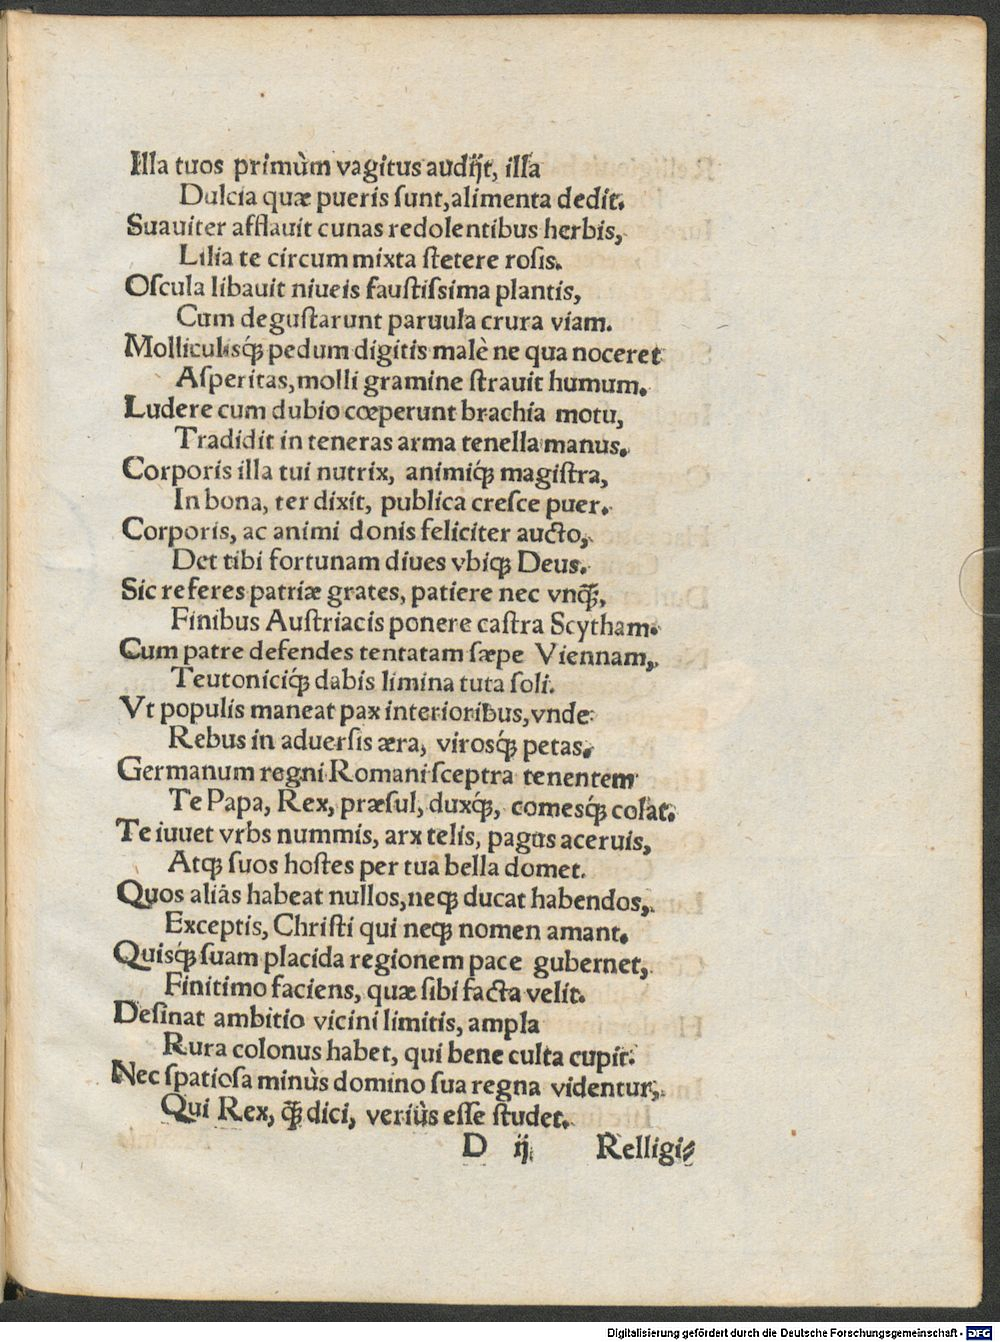 Illa tuos primùm vagitus audĳt, illa
Dulcia quæ pueris ſunt, alimenta dedit.
Suauiter afflauit cunas redolentibus herbis,
Lilia te circum mixta ſtetere roſis.
Oſcula libauit niueis fauſtiſsima plantis,
Cum deguſtarunt paruula crura viam.
Molliculisq́; pedum digitis malè ne qua noceret
Aſperitas, molli gramine ſtrauit humum.
Ludere cum dubio cœperunt brachia motu,
Tradidit in teneras arma tenella manus.
Corporis illa tui nutrix, animiq́; magiſtra,
In bona, ter dixit, publica creſce puer.
Corporis, ac animi donis feliciter aucto,
Det tibi fortunam diues vbiq; Deus.
Sic referes patriæ grates, patiere nec vnq̃;,
Finibus Auſtriacis ponere caſtra Scytham.
Cum patre defendes tentatam ſæpe Viennam,
Teutoniciq́; dabis limina tuta ſoli.
Vt populis maneat pax interioribus, vnde
Rebus in aduerſis æra, virosq́; petas.
Germanum regni Romani ſceptra tenentem
Te Papa, Rex, præſul, duxq́;, comesq́; colat.
Te iuuet vrbs nummis, arx telis, pagus aceruis,
Atq; ſuos hoſtes per tua bella domet.
Quos aliâs habeat nullos, neq; ducat habendos,
Exceptis, Chriſti qui neq; nomen amant.
Quisq́; ſuam placida regionem pace gubernet,
Finitimo faciens, quæ ſibi facta velit.
Deſinat ambitio vicini limitis, ampla
Rura colonus habet, qui bene culta cupit.
Nec ſpatioſa minùs domino ſua regna videntur,
Qui Rex, q̃; dici, veriùs eſſe ſtudet.
D ĳ Relligi-
Digitalisierung gefördert durch die Deutsche Forschungsgemeinschaft - DFG